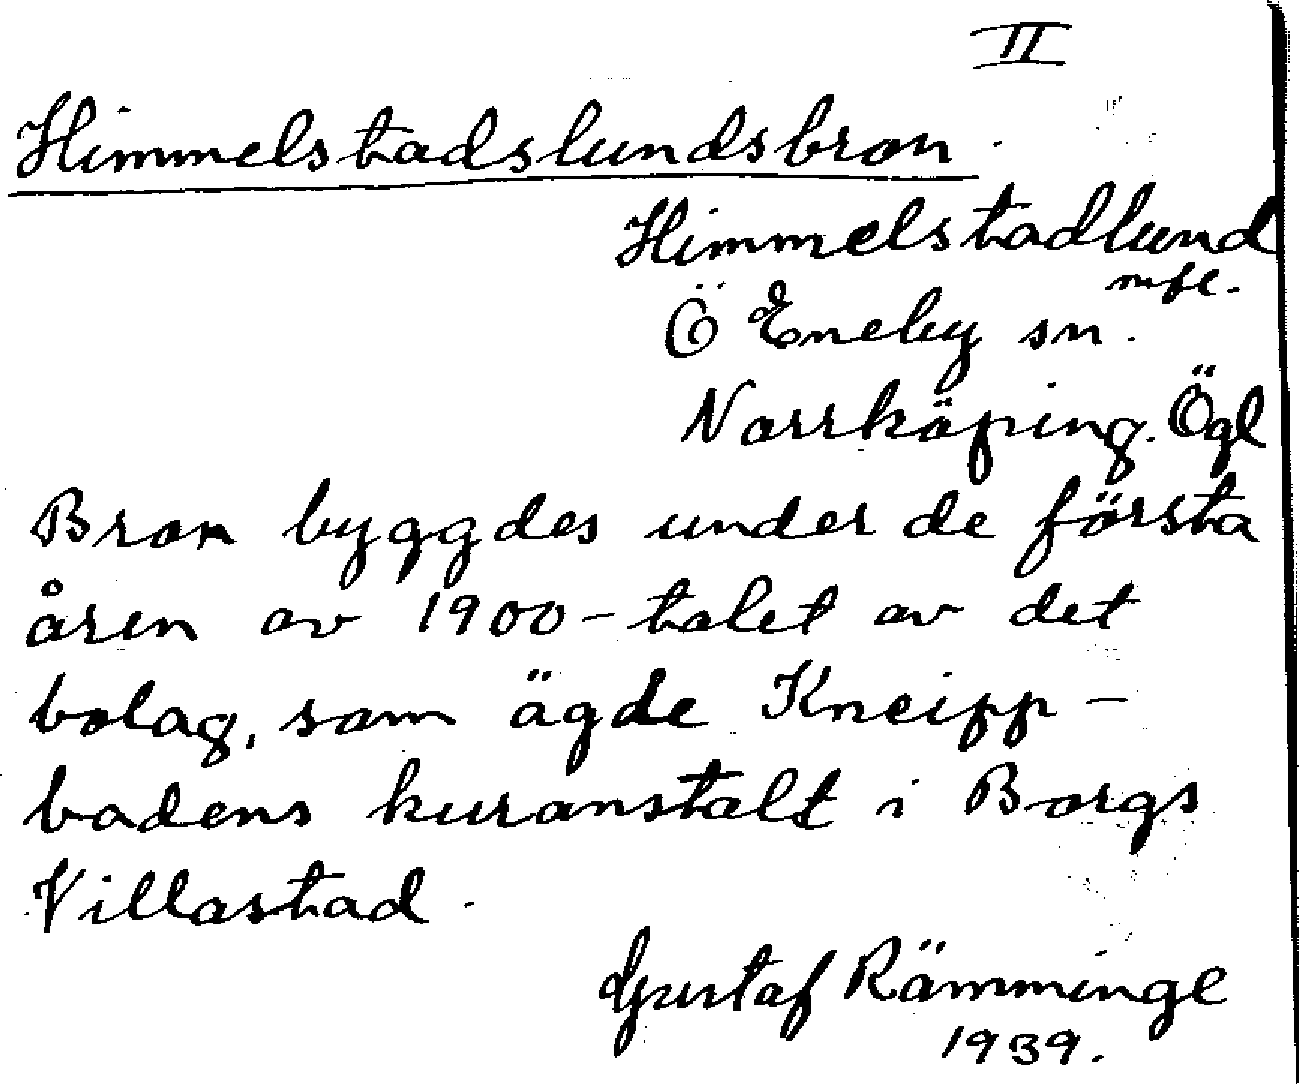 II
Himmelstadslundsbron.
Himmelstadlund
mfl.
Ö Eneby sn.
Norrköping. Ögl
Bron byggdes under de första
åren av 1900-talet av det
bolag, som ägde Kneipp-
badens kuranstalt i Borgs
Villastad.
Gustaf Rämminge
1939.